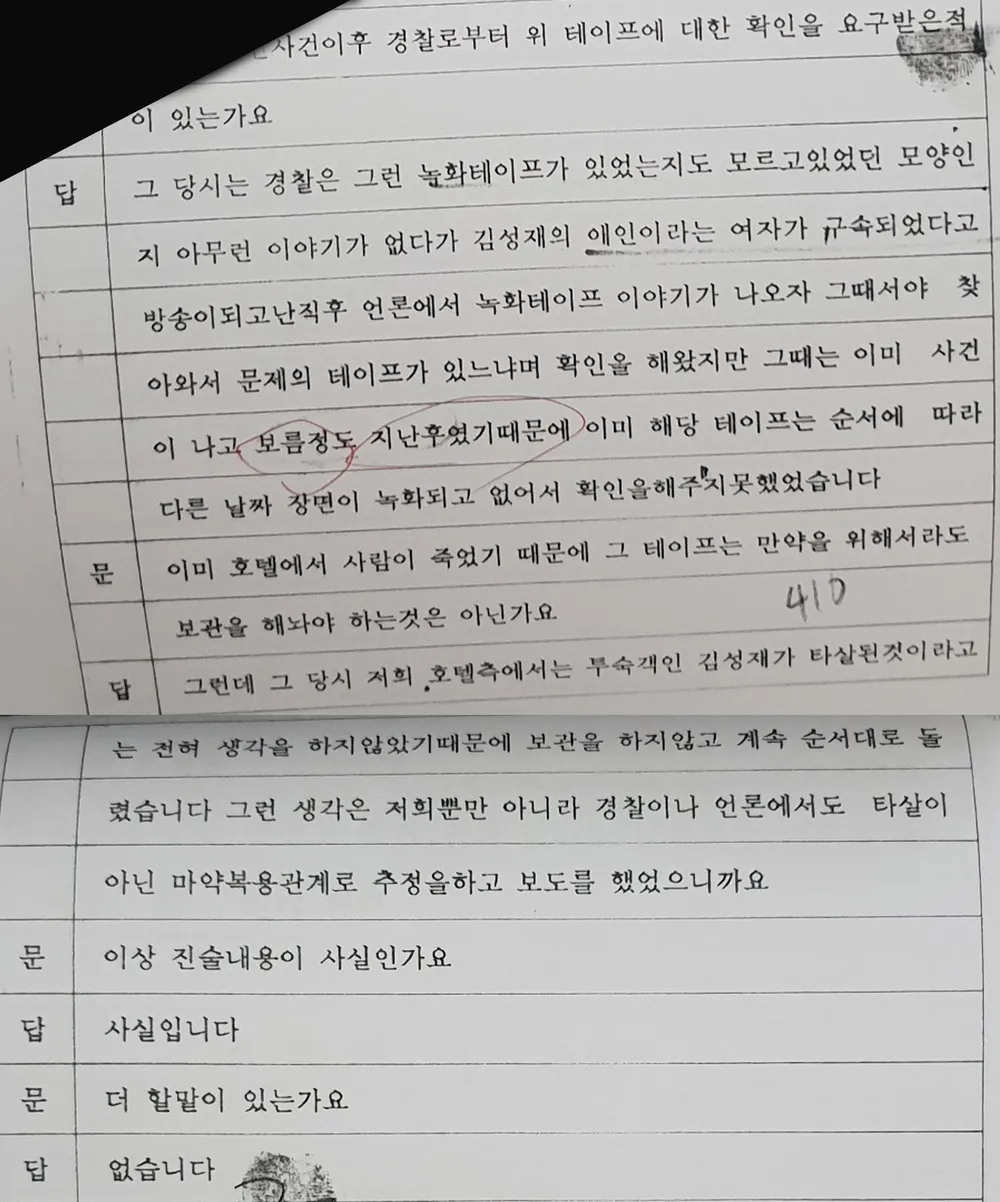 사건이후 경찰로부터 위 테이프에 대한 확인을 요구받은적
이 있는가요
답 그 당시는 경찰은 그런 녹화테이프가 있었는지도 모르고있었던 모양인
지 아무런 이야기가 없다가 김성재의 애인이라는 여자가 구속되었다고
방송이되고난직후 언론에서 녹화테이프 이야기가 나오자 그때서야 찾
아와서 문제의 테이프가 있느냐며 확인을 해왔지만 그때는 이미 사건
이 나고 보름정도 지난후였기때문에 이미 해당 테이프는 순서에 따라
다른 날짜 장면이 녹화되고 없어서 확인을해주지못했었습니다
문 이미 호텔에서 사람이 죽었기 때문에 그 테이프는 만약을 위해서라도
보관을 해놔야 하는것은 아닌가요
410
답 그런데 그 당시 저희 호텔측에서는 투숙객인 김성재가 타살된것이라고
는 전혀 생각을 하지않았기때문에 보관을 하지않고 계속 순서대로 돌
렸습니다 그런 생각은 저희뿐만 아니라 경찰이나 언론에서도 타살이
아닌 마약복용관계로 추정을하고 보도를 했었으니까요
문 이상 진술내용이 사실인가요
답 사실입니다
문 더 할말이 있는가요
답 없습니다